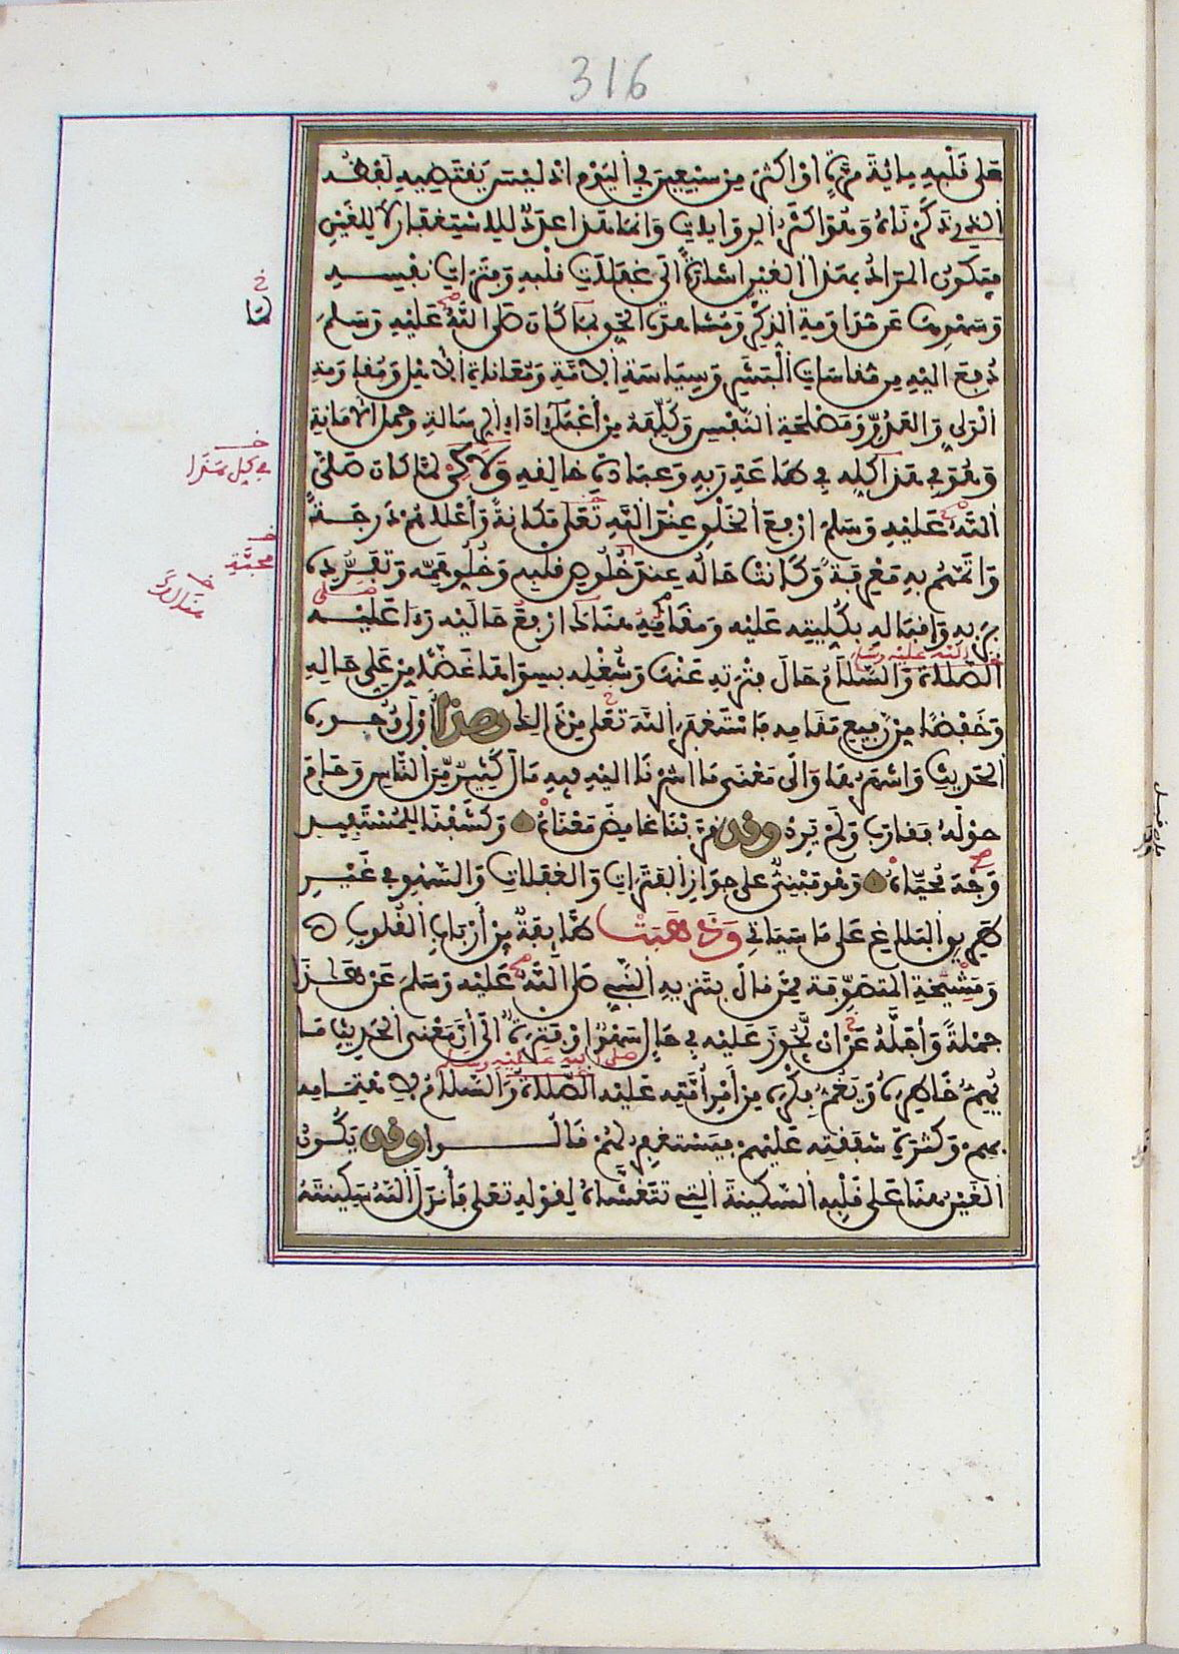 316
على قلبه مائة مرة او اكثر من سبعين في اليوم اذ ليس يقتضيه لفظه
الذي ذكرناه وهو اكثر الروايات وانما هذا عدد للاستغفار لا للغين
فيكون المراد بهذا الغين اشارة الى غفلات قلبه وفترات نفسه
وسهوها عن مداومة الذكر ومشاهدة الحق بما كان صلى الله عليه وسلم
دفع اليه من مقاسات البشر وسياسة الامة ومعاناة الاهل ومقاومة
الولي والعدو ومصلحة النفس وكلفه من أعباء اداء الرسالة وحمل الامانة
وهو في هذا كله في طاعة ربه وعبادة خالقه ولاكن لما كان صلى
الله عليه وسلم ارفع الخلق عند الله تعلى مكانة وأعلاهم درجة
واتمهم به معرفة وكانت حاله عند خلوص قلبه وخلو همه وتفرده
بربه واقباله بكليته عليه ومقامه هناك ارفع حاليه رءا عليه
صلى الله عليه وسلم
الصلاة والسلام حال فترته عنها وشغله بسواها غضا من علي حاله
وخفضا من رفيع مقامه فاستغفر الله تعلى من ذالك وهذا أولى وجوه
الحديث واشهرها والى معنى ما اشرنا اليه فيه مال كثير من الناس وحام
حوله فقارب ولم يرد وقد قربنا غامض معناه وكشفنا للمستفيد
وجه محياه وهو مبني على جواز الفترات والغفلات والسهو في غير
طريق البلاغ على ما سياتي وذهبت طايفة من أرباب القلوب
ومشيخة المتصوفة ممن قال بتنزيه النبي صلى الله عليه وسلم عن هذا
جملة وأجله عن ان يجوز عليه في حال سهو او فترة الى أن معنى الحديث ما
صلى الله عليه وسلم
يهم خاطره ويغم فكره من أمر أمته عليه الصلاة والسلام لاهتمامه
بهم وكثرة شفقته عليهم فيستغفر لهم قالوا وقد يكون
الغين هنا على قلبه السكينة التي تتغشاه لقوله تعلى فأنزل الله سكينته
خ
لما
خ
في كل هذا
خ
محبته
خ